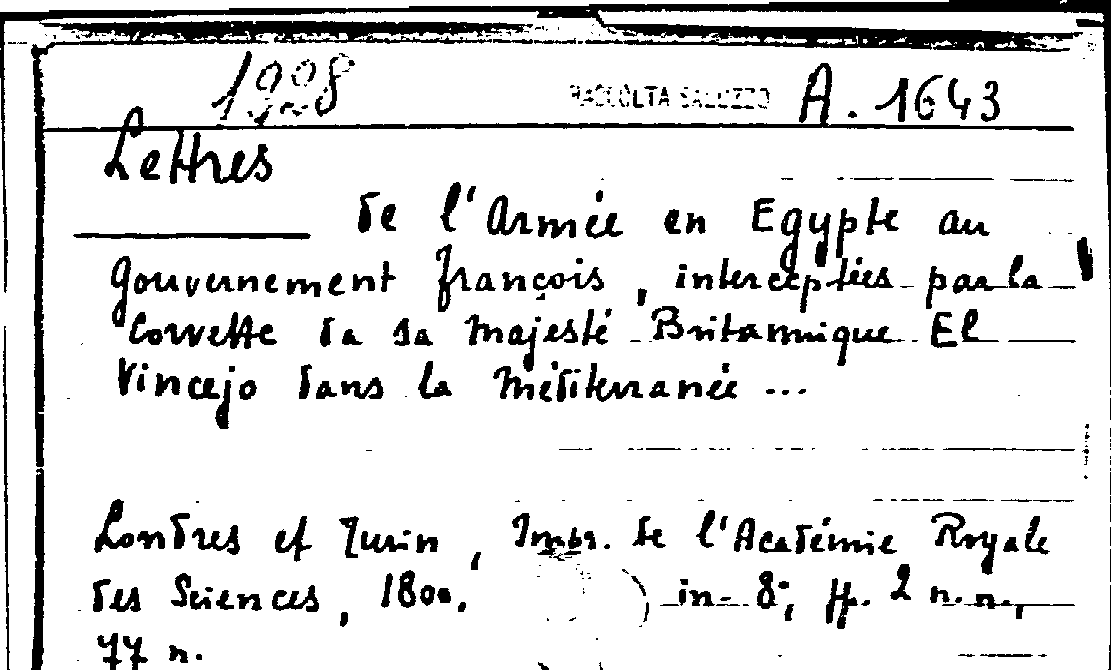 1928 RACCOLTA SALUZZO A. 1643
Lettres
de l'Armée en Egypte au
Gouvernement françois, interceptées par la
Corvette da sa Majesté Britannique El
Vincejo dans la Méditerranée ...
Londres et Turin, Impr. de l'Académie Royale
des Sciences, 1800. in-8°, ff. 2 n.n.,
77 n.